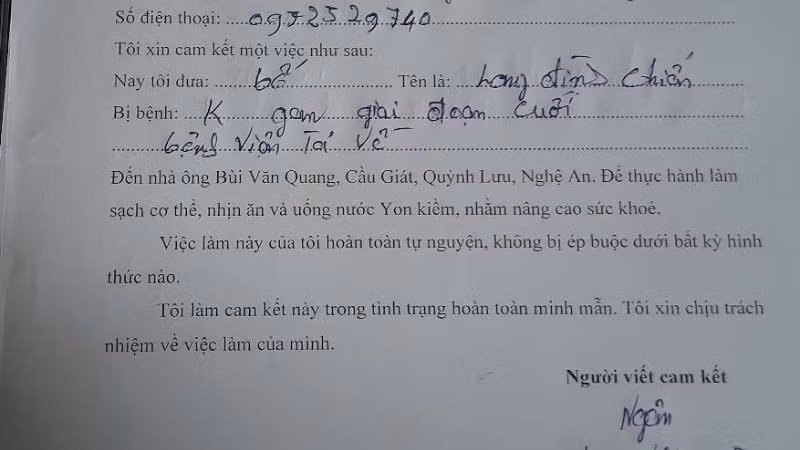 Số điện thoại: 0952529740
Tôi xin cam kết một việc như sau:
Nay tôi đưa: bố Tên là: Long đình Chiến
Bị bệnh: K gan giai đoạn cuối
bệnh viện Trả Về
Đến nhà ông Bùi Văn Quang, Cầu Giát, Quỳnh Lưu, Nghệ An. Để thực hành làm
sạch cơ thể, nhịn ăn và uống nước Yon kiềm, nhằm nâng cao sức khoẻ.
Việc làm này của tôi hoàn toàn tự nguyện, không bị ép buộc dưới bất kỳ hình
thức nào.
Tôi làm cam kết này trong tình trạng hoàn toàn minh mẫn. Tôi xin chịu trách
nhiệm về việc làm của mình.
Người viết cam kết
Ngôn